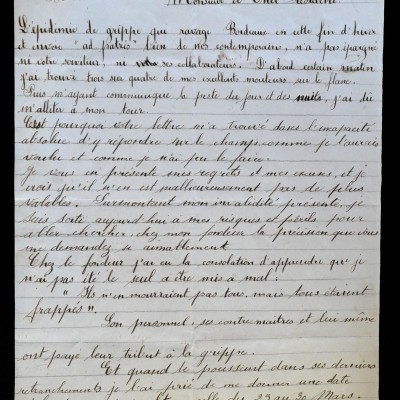 L'épidémie de grippe qui ravage Bordeaux en cette fin d'hiver
et envoie "ad patres" bien de nos contemporains, n'a pas épargné
ni votre serviteur, ni ses collaborateurs. D'abord certain matin
j'ai trouvé trois ou quatre de mes excellents mouleurs sur le flanc.
Puis m'ayant communiqué la peste du jour et des nuits, j'ai dû
m'aliter à mon tour.
C'est pourquoi votre lettre m'a trouvé dans l'incapacité
absolue d'y répondre sur le champ comme je l'aurais
voulu et comme je n'ai pu le faire.
Je vous en présente mes regrets et mes excuses, et je
crois qu'il n'en est malheureusement pas de plus
valables. Surmontant mon invalidité présente, je
suis sorti aujourd'hui à mes risques et périls pour
aller chercher chez mon fondeur la précision que vous
me demandez si aimablement.
Chez le fondeur j'ai eu la consolation d'apprendre que je
n'ai pas été le seul a être mis à mal,
"Ils n'en mourraient pas tous, mais tous étaient
frappés".
Son personnel, ses contremaîtres et lui même
ont payé leur tribut à la grippe.
Et quand le poussant dans ses derniers
retranchements je l'ai prié de me donner une date
celle des 23 au 30 Mars.